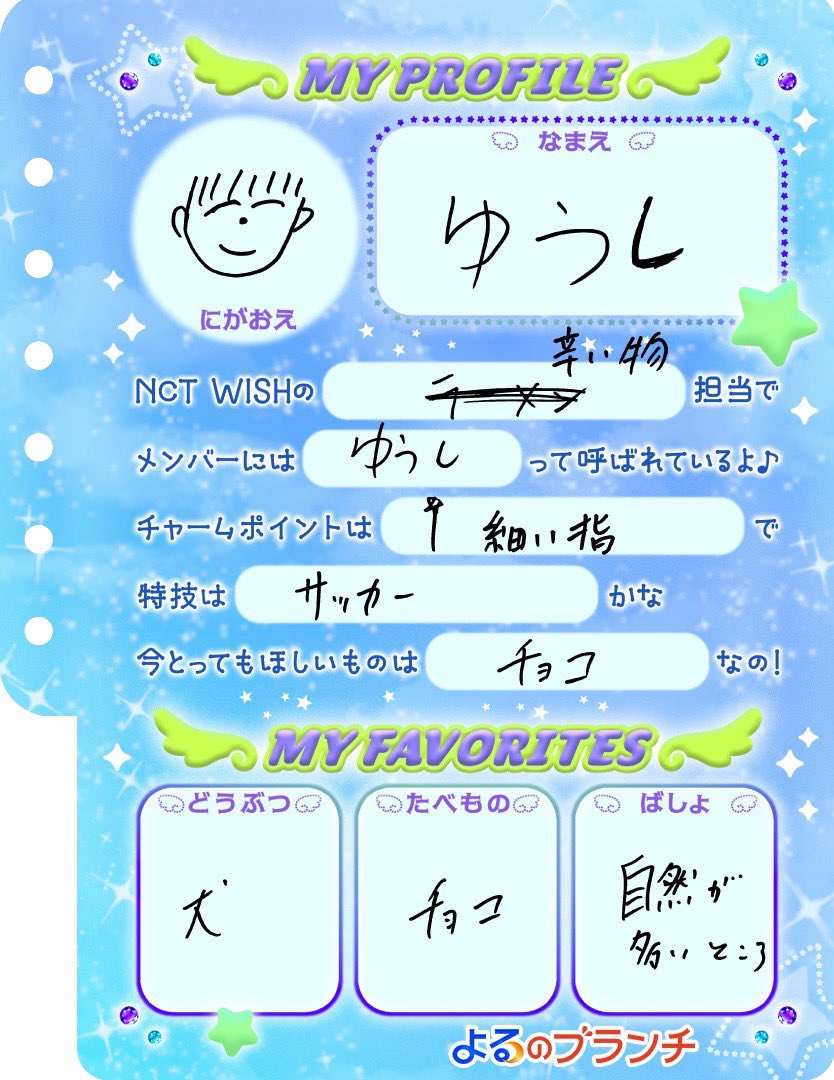 MY PROFILE
なまえ
ゆうし
にがおえ
辛い物
NCT WISHの 担当で
メンバーには ゆうし って呼ばれているよ♪
チャームポイントは 細い指 で
特技は サッカー かな
今とってもほしいものは チョコ なの!
MY FAVORITES
どうぶつ たべもの ばしょ
犬 チョコ 自然が
多いところ
よるのブランチ